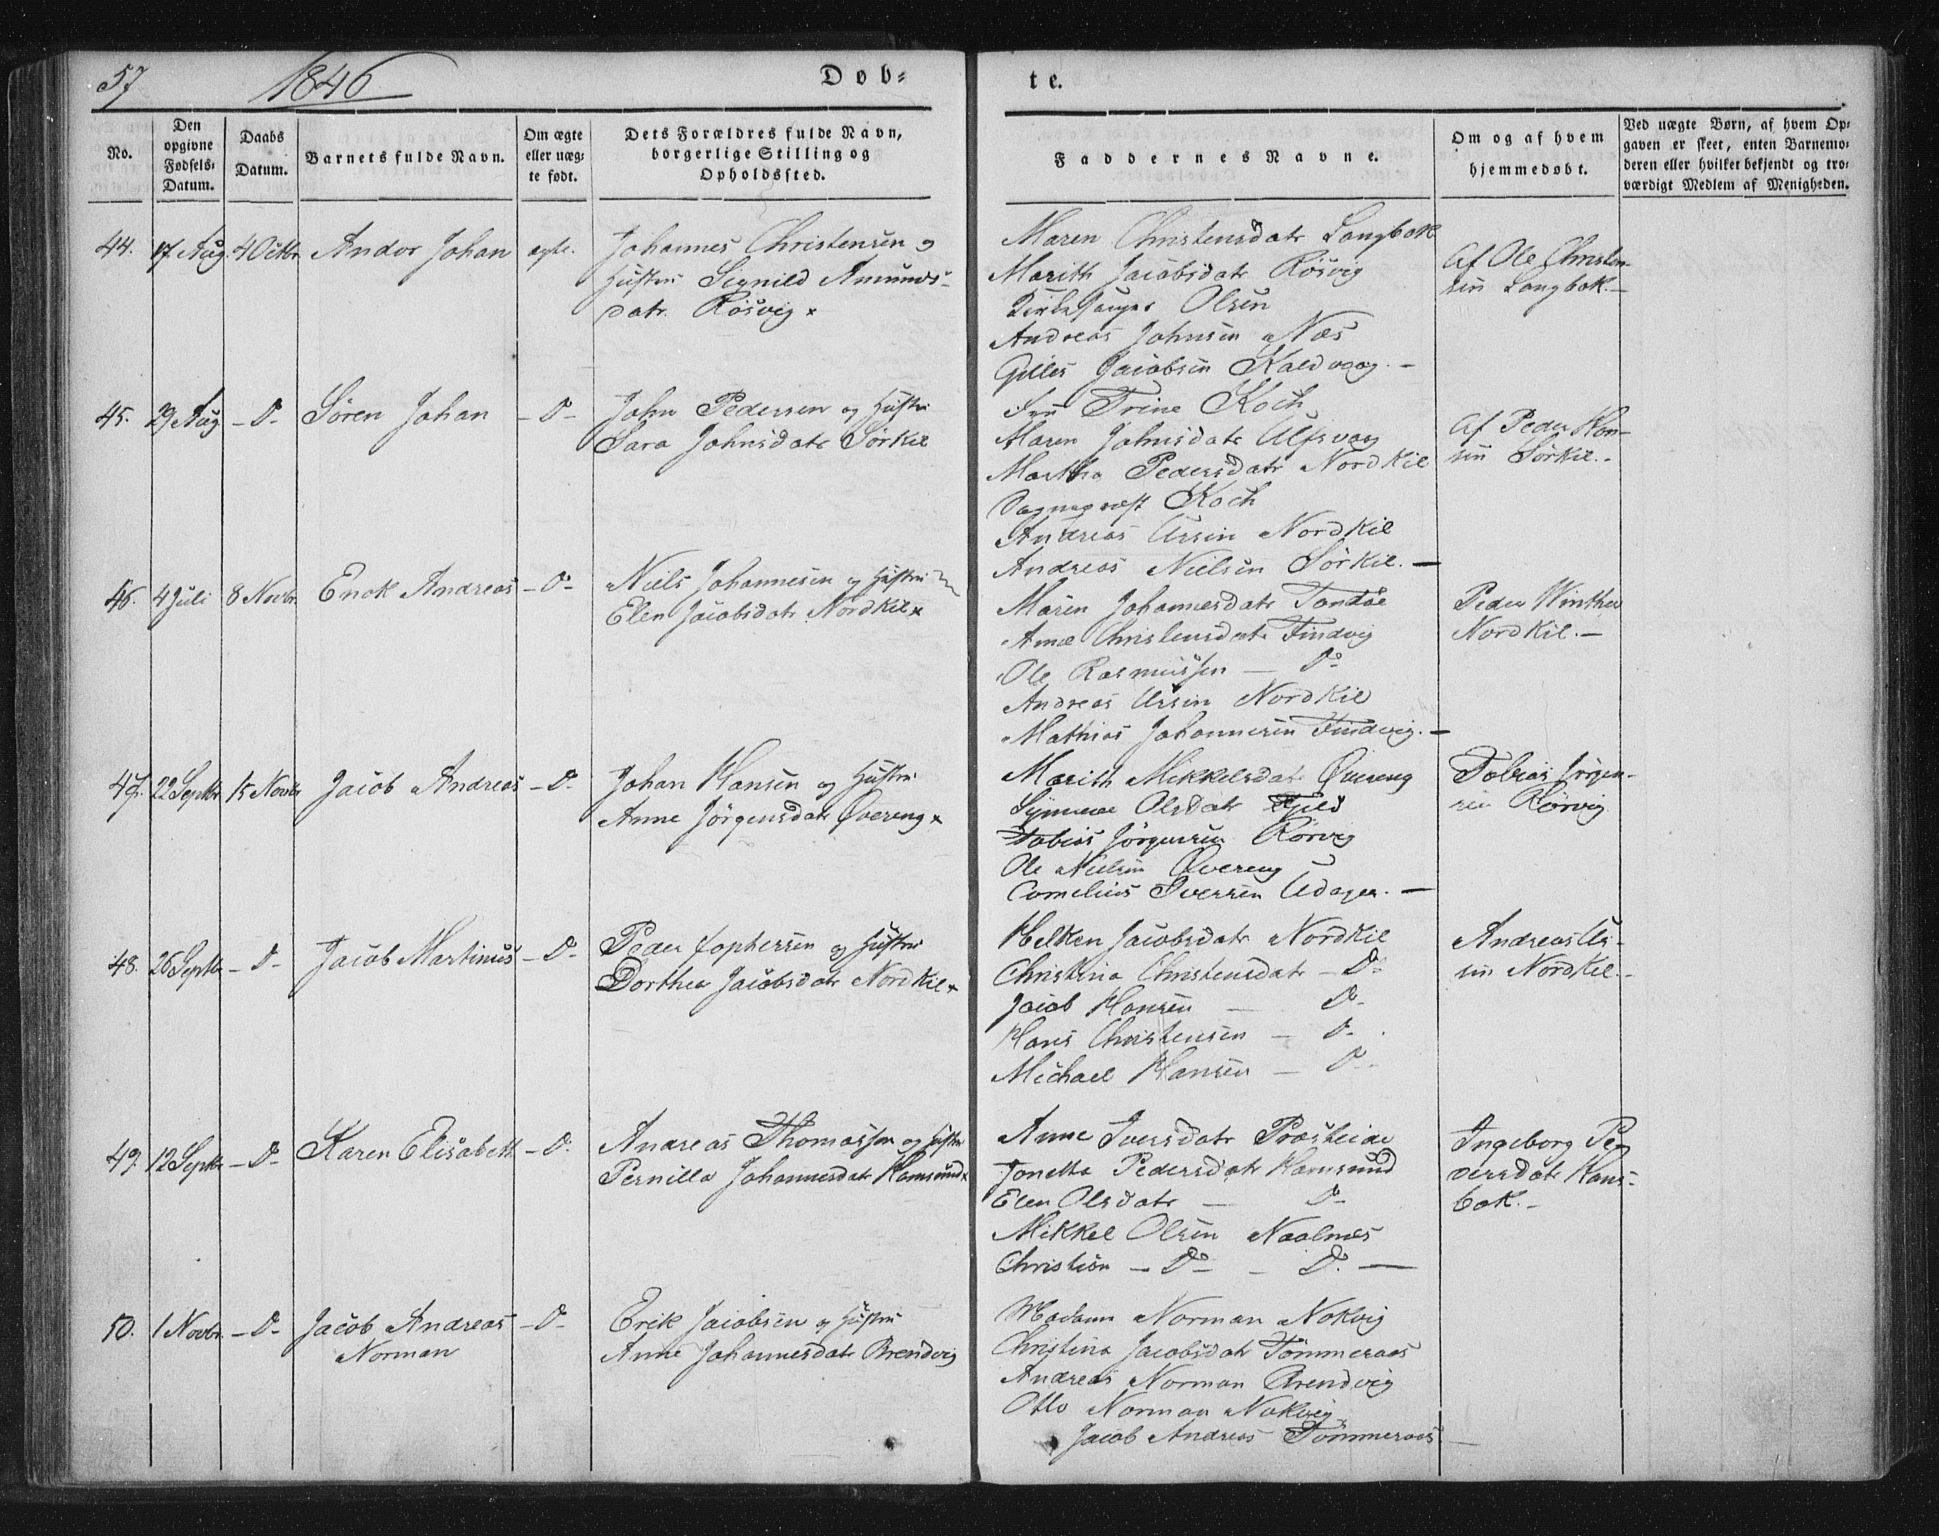 57 1846 Døb= te.
No.
Den opgivne Fødsels= Datum.
Daabs Datum.
Barnets fulde Navn.
Om ægte eller uæg= te født.
Dets Forældres fulde Navn, borgerlige Stilling og Opholdssted.
Faddernes Navne.
Om og af hvem hjemmedøbt.
Ved uægte Børn, af hvem Op= gaven er skeet, enten Barnemo= deren eller hvilket bekjendt og tro= værdigt Medlem af Menigheden.
44. 17 Aug. 4 Octbr. Andor Johan ægte.
Johannes Christensen og
Hustru Signild Amunds-
datr. Rösvig x
Maren Christensdatr Langbok
Marith Jacobsdatr Rösvig
Kirkesanger Olsen
Andreas Johnsen Næs
Gilles Jacobsen Kaldvaag. -
Af Ole Christen-
sen Langbok. -
45. 29 Aug - D - Sören Johan - D -
John Pedersen og Hustru
Sara Johnsdatr Sörkil
Trine Koch
Maren Johnsdatr Ulfsvaag
Martha Pedersdatr Nordkil
Koch
Andreas Ursin Nordkil
Andreas Nielsen Sörkil. -
Af Peder Han-
sen Sörkil. -
46. 4 Juli 8 Novbr. Enok Andreas - D -
Niels Johannesen og Hustru
Elen Jacobsdatr Nordkil x
Maren Johannesdatr Tandöe
Ane Christensdatr Findvig
Ole Rasmussen - D -
Andreas Ursin Nordkil
Mathias Johannesen Findvig. -
Peder Winther
Nordkil. -
47. 22 Septbr 15 Novbr Jacob Andreas - D -
Johan Hansen og Hustru
Anne Jörgensdatr Øvereng x
Marith Mikkelsdatr Øvereng
Olsdatr Fjeld
Tobias Jörgensen Rörvig
Ole Nielsen Øvereng
Cornelius Iversen
Tobias Jörgen-
sen Rörvig
48. 26 Septbr - D - Jacob Martinus - D -
Peder Tophersen og Hustru
Dorthea Jacobsdatr Nordkil x
Helken Jacobsdatr Nordkil
Christina Christensdatr - D -
Jacob Hansen - D -
Hans Christensen - D -
Michael Hansen - D -
Andreas Ur-
sin Nordkil. -
49. 12 Septbr - D - Karen Elisabeth - D.
Andreas Thomassen og Hustru
Pernilla Johannesdatr Hamsund x
Anne Iversdatr Præsteide
Jonetta Pedersdatr Hamsund
Elen Olsdatr - D -
Mikkel Olsen Naalnæs
Christian - D - - D. -
Ingeborg Pe-
dersdatr Hans-
bak. -
50. 1 Novbr. - D - Jacob Andreas - D -
Norman
Erik Jacobsen og Hustru
Anne Johannesdatr Brendvig
Madam Norman Nokvig
Christina Jacobsdatr Tömmeraas
Andreas Norman Brendvig
Otto Norman Nokvig
Jacob Andreas Tömmeraas -